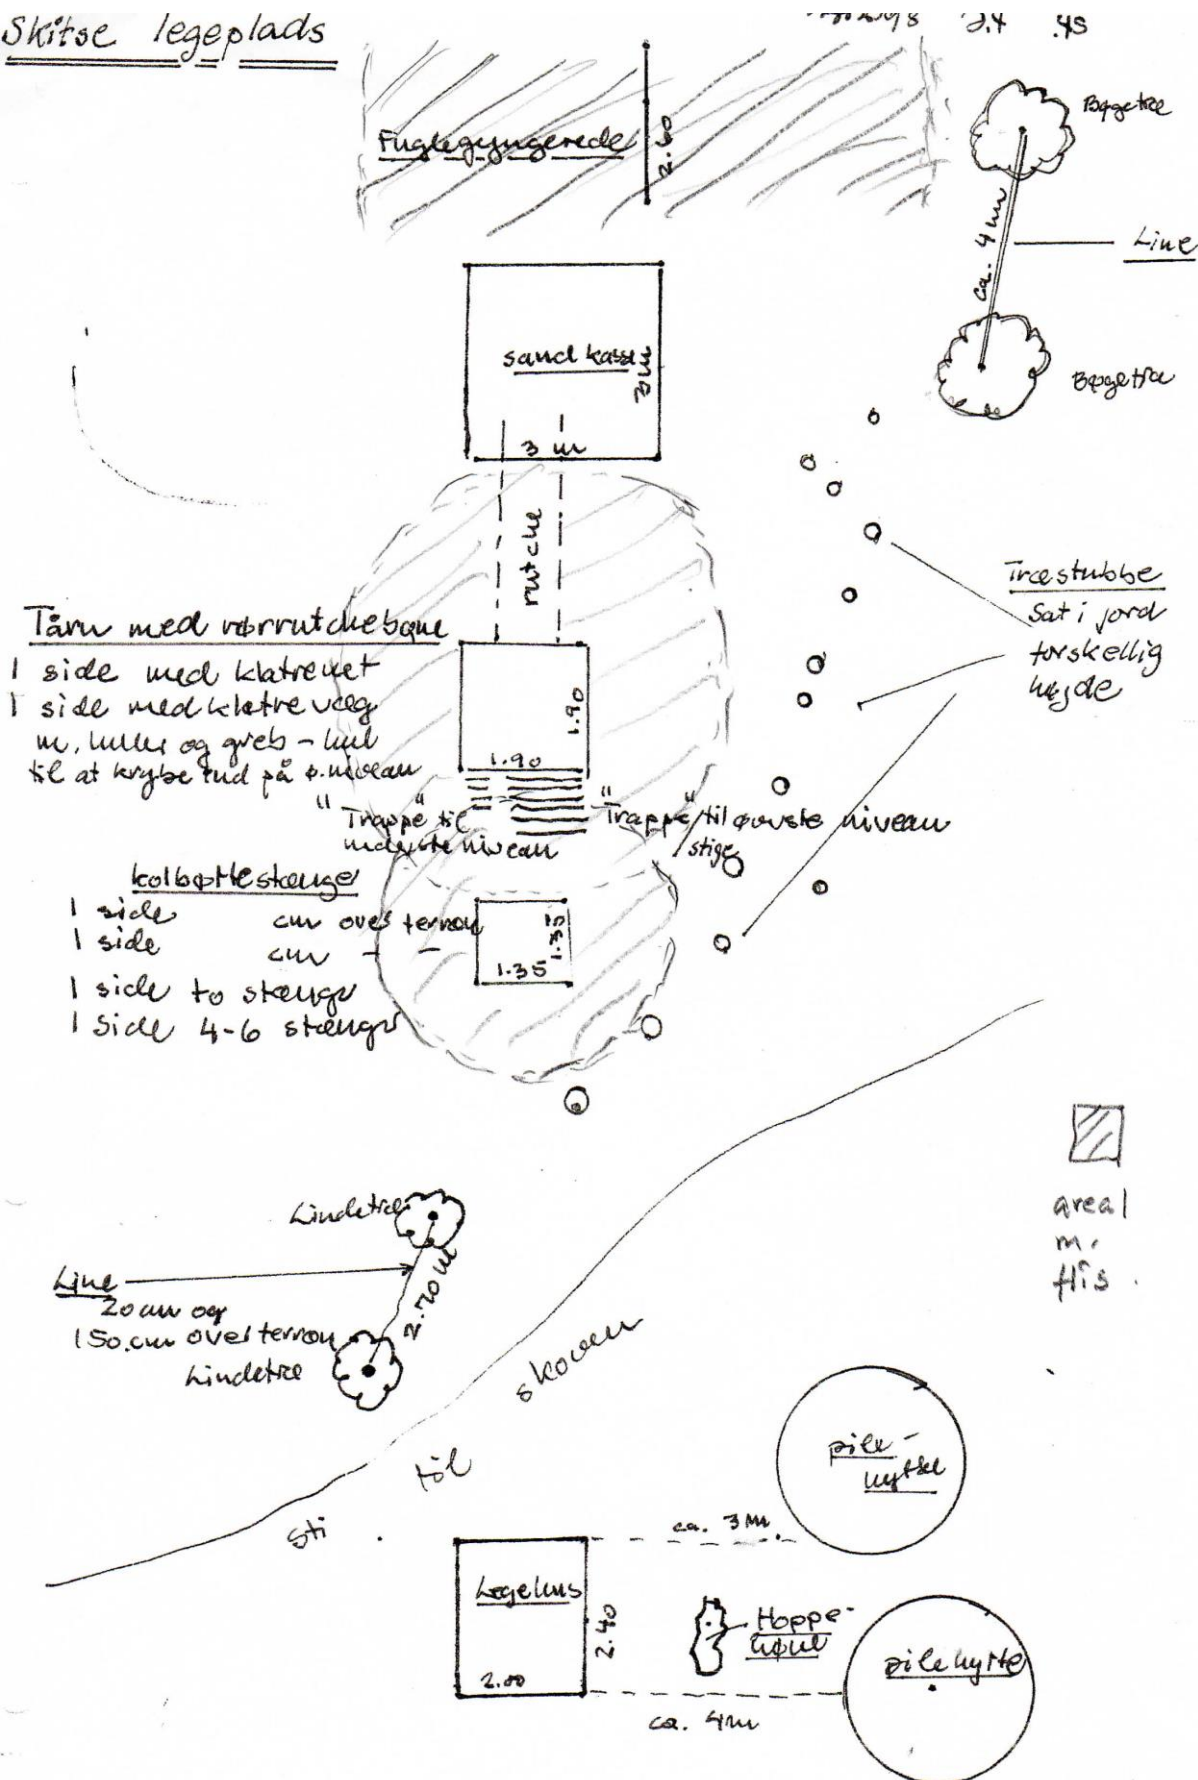 Skitse legeplads
24 .45
Fuglegyngerede
2.60
Bøgetræ
ca. 4m
Line
Bøgetræ
sandkasse
3m
3 m
rutche
Træstubbe
Sat i jord
forskellig
højde
Tårn med rørrutchebane
1 side med klatrenet
1 side med klatrevæg
m. huller og greb - hul
til at krybe ind på ø.niveau
1.90
1.90
"Trappe" til
nederste niveau
"Trappe"/til øverste niveau
stige
kolbøttestænger
1 side cm over terræn
1 side cm - -
1 side to stænger
1 side 4-6 stænger
1.35
1.35
areal
m.
flis.
Lindetræ
Line
20 cm og
150.cm over terræn
2.70 m
Lindetræ
sti til skoven
pile-
hytte
ca. 3m.
Legehus
2.40
2.00
Hoppe-
pilehytte
ca. 4m